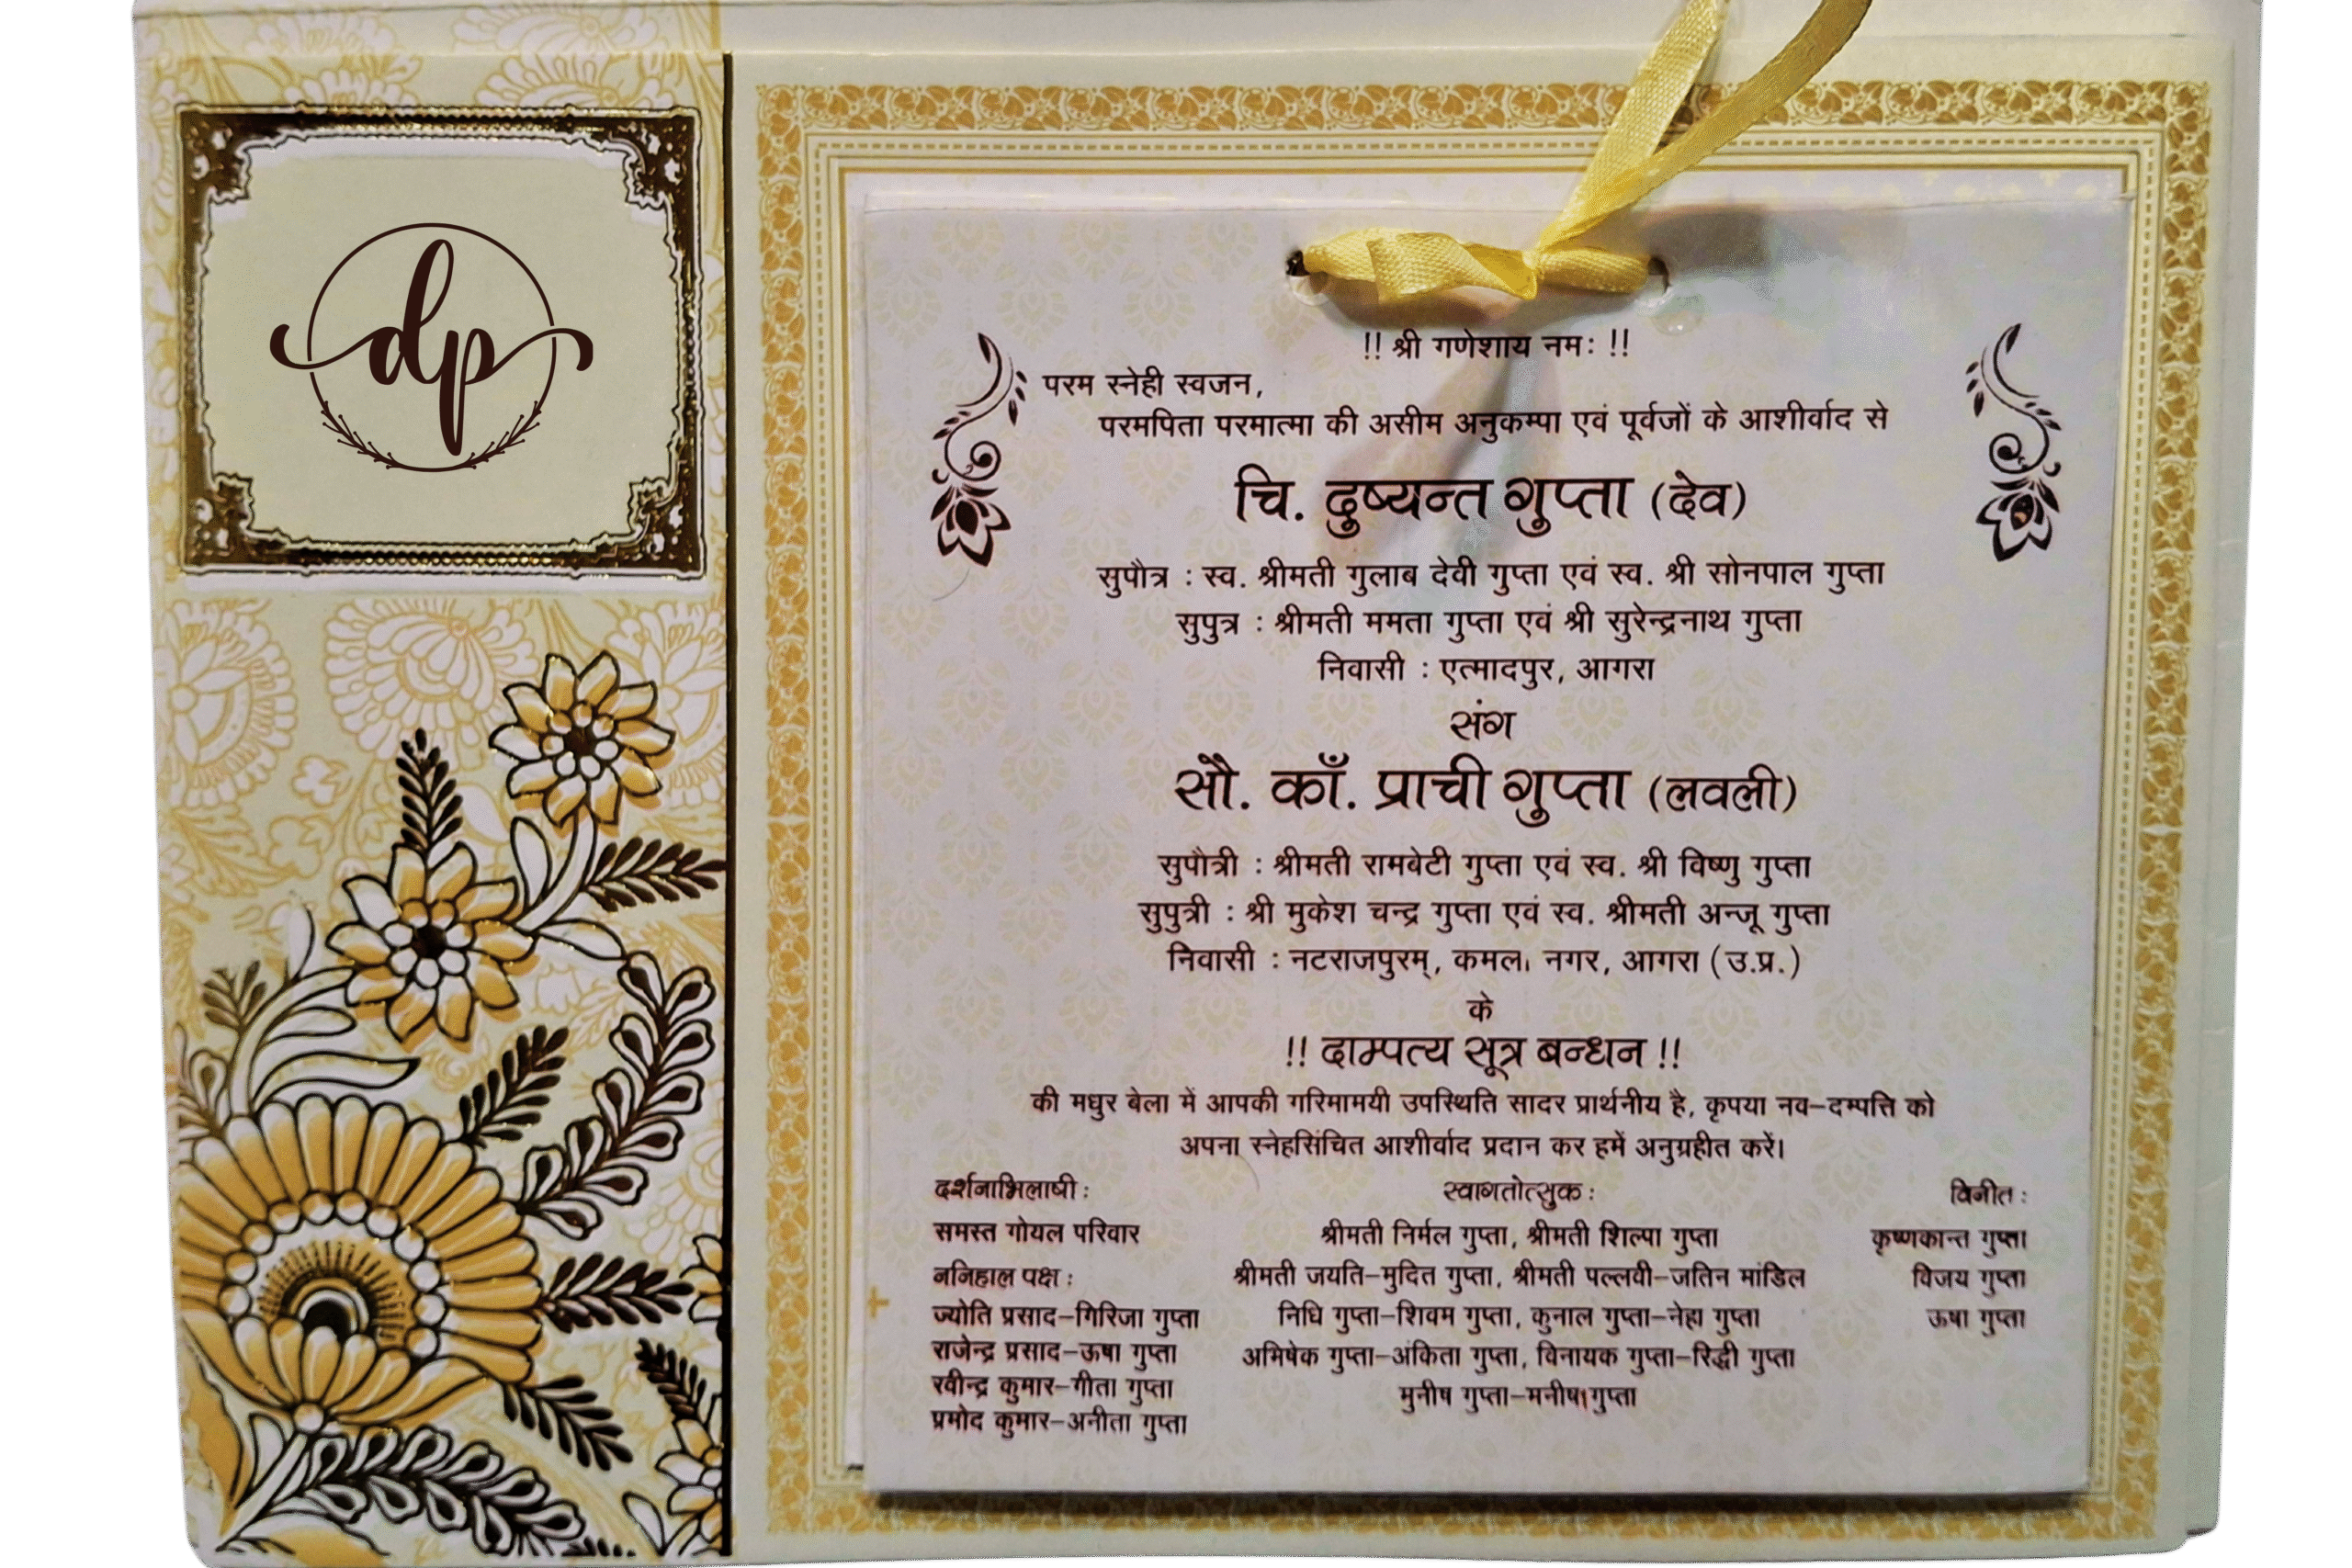 dp
!! श्री गणेशाय नमः !!
परम स्नेही स्वजन,
परमपिता परमात्मा की असीम अनुकम्पा एवं पूर्वजों के आशीर्वाद से
चि. दुष्यन्त गुप्ता (देव)
सुपौत्र : स्व. श्रीमती गुलाब देवी गुप्ता एवं स्व. श्री सोनपाल गुप्ता
सुपुत्र : श्रीमती ममता गुप्ता एवं श्री सुरेन्द्रनाथ गुप्ता
निवासी : एत्मादपुर, आगरा
संग
सौ. काँ. प्राची गुप्ता (लवली)
सुपौत्री : श्रीमती रामबेटी गुप्ता एवं स्व. श्री विष्णु गुप्ता
सुपुत्री : श्री मुकेश चन्द्र गुप्ता एवं स्व. श्रीमती अन्जू गुप्ता
निवासी : नटराजपुरम्, कमला नगर, आगरा (उ.प्र.)
के
!! दाम्पत्य सूत्र बन्धन !!
की मधुर बेला में आपकी गरिमामयी उपस्थिति सादर प्रार्थनीय है, कृपया नव-दम्पत्ति को
अपना स्नेहसिंचित आशीर्वाद प्रदान कर हमें अनुग्रहीत करें।
दर्शनाभिलाषी :
समस्त गोयल परिवार
ननिहाल पक्ष :
ज्योति प्रसाद-गिरिजा गुप्ता
राजेन्द्र प्रसाद-ऊषा गुप्ता
रवीन्द्र कुमार-गीता गुप्ता
प्रमोद कुमार-अनीता गुप्ता
स्वागतोत्सुक :
श्रीमती निर्मल गुप्ता, श्रीमती शिल्पा गुप्ता
श्रीमती जयति-मुदित गुप्ता, श्रीमती पल्लवी-जतिन मांडिल
निधि गुप्ता-शिवम गुप्ता, कुनाल गुप्ता-नेहा गुप्ता
अभिषेक गुप्ता-अंकिता गुप्ता, विनायक गुप्ता-रिद्धी गुप्ता
मुनीष गुप्ता-मनीषा गुप्ता
विनीत :
कृष्णकान्त गुप्ता
विजय गुप्ता
ऊषा गुप्ता